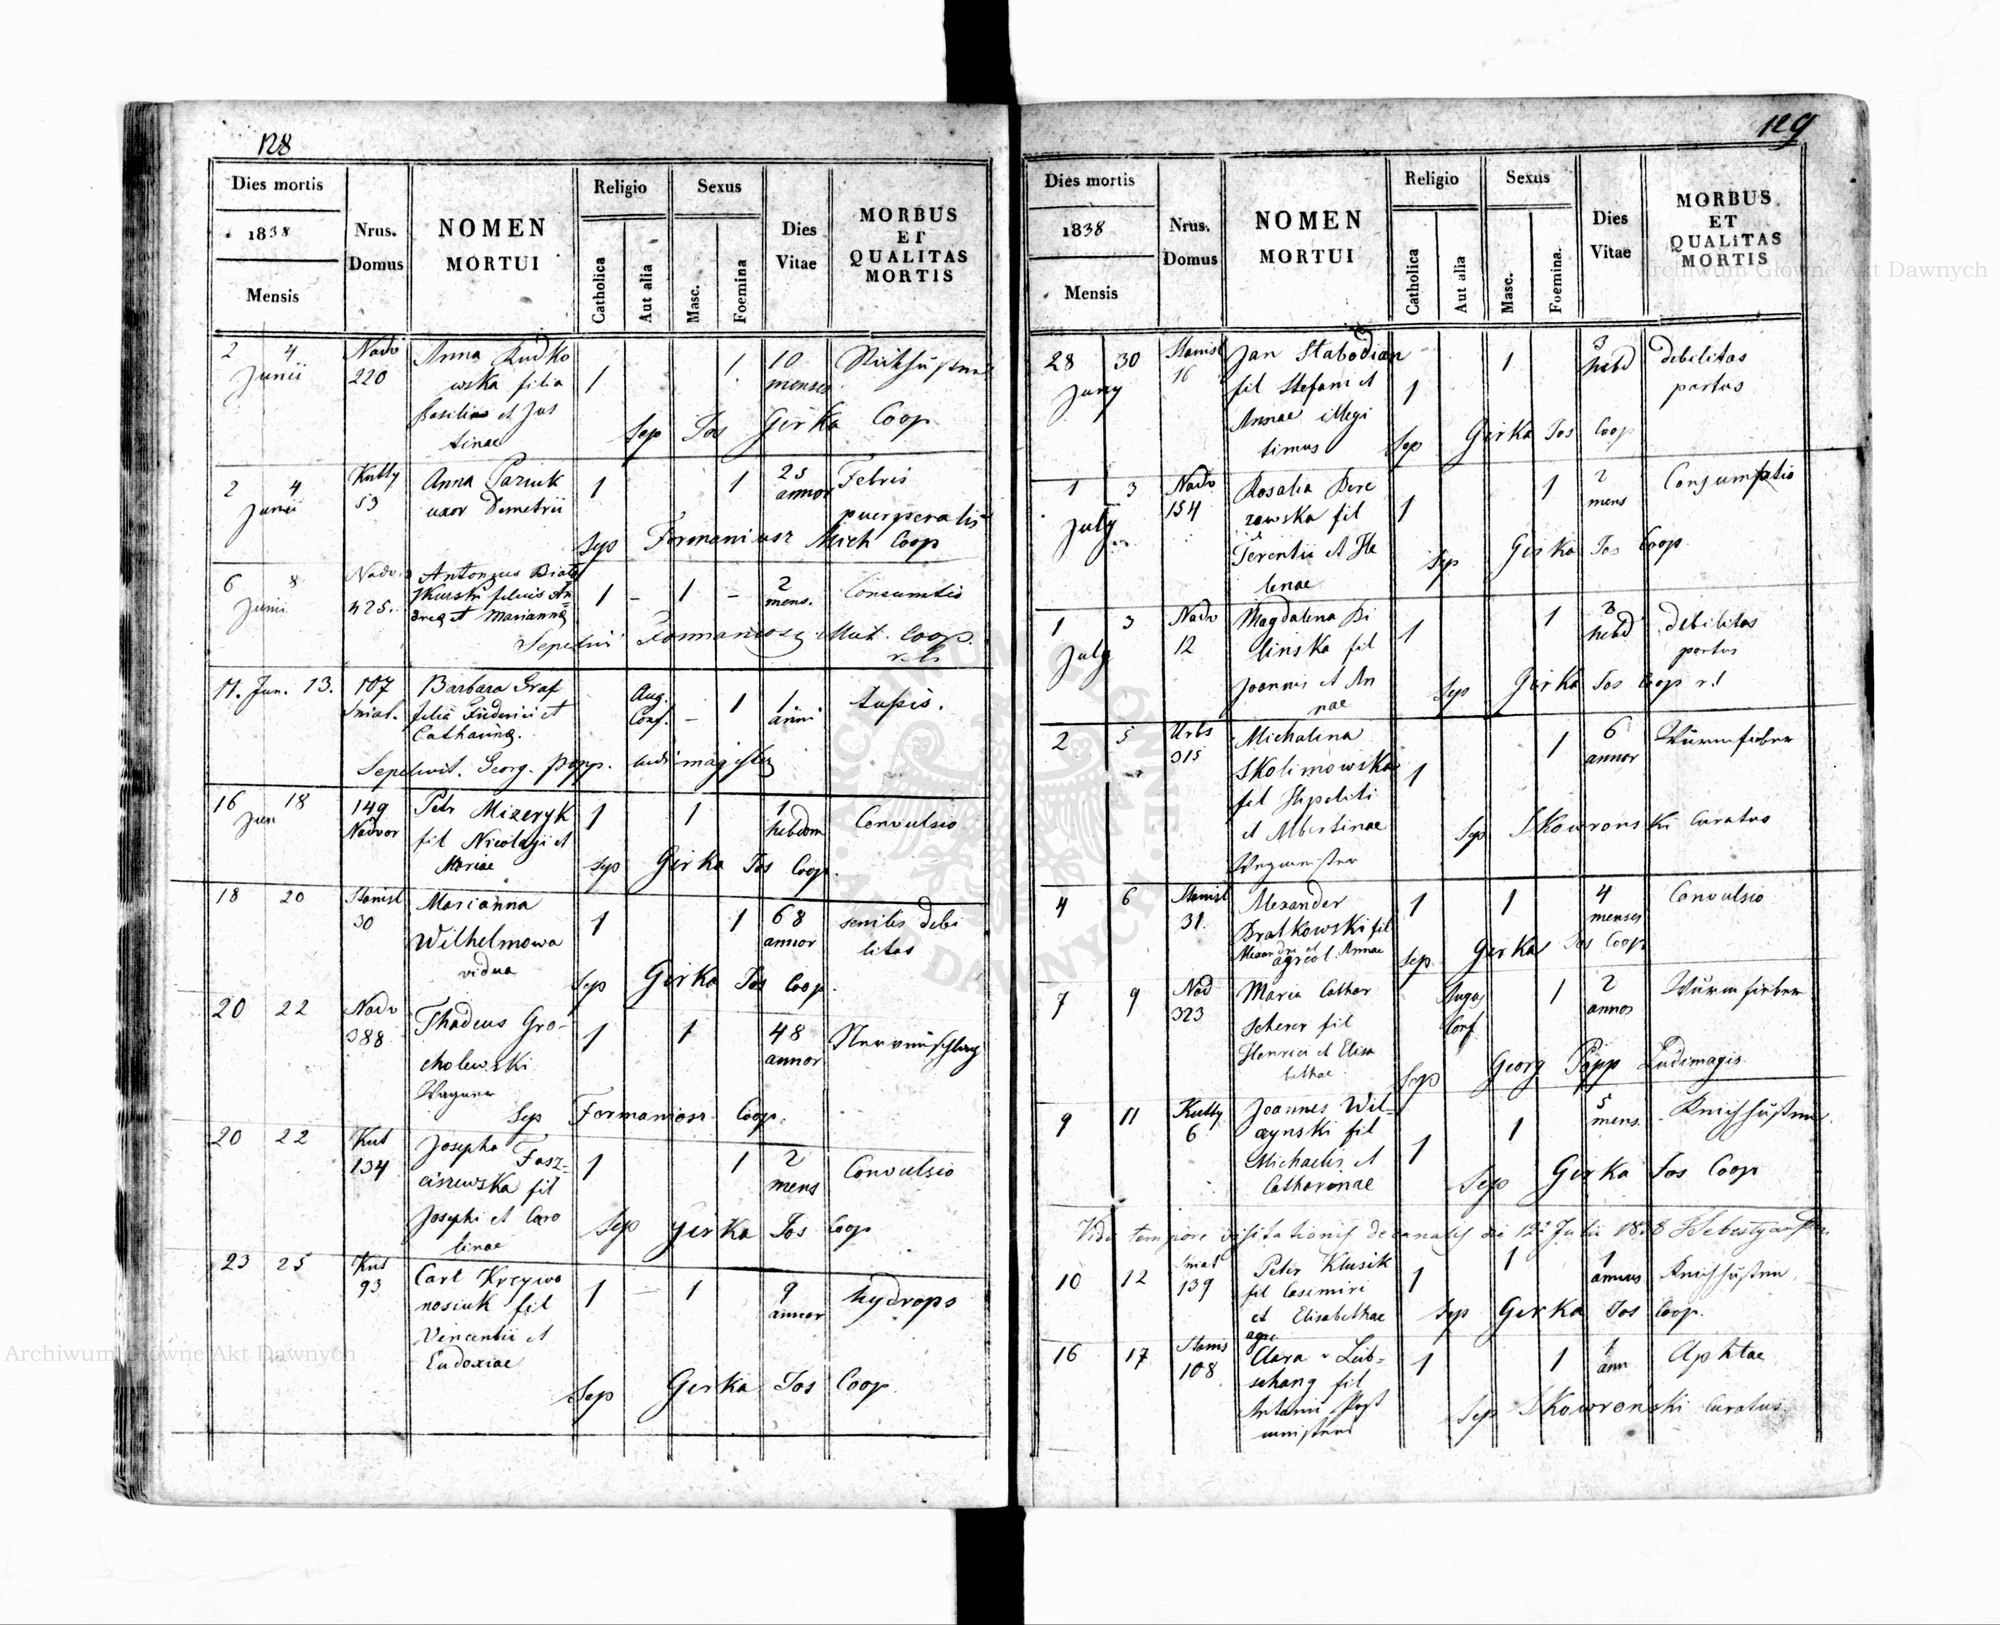 128
Dies mortis
1838
Mensis
Nrus. Domus
NOMEN MORTUI
Religio
Catholica
Aut alia
Sexus
Masc.
Foemina
Dies Vitae
MORBUS ET QUALITAS MORTIS
2 4 Nadv Anna Rudko 1 10
Junii 220 wska filia 1 menses
Basilius et Jus Sep Jos Girka Coop
tinae
2 4 Kutty Anna Paziuk 1 1 25 Febris
Junii 53 uxor Demetrii annor puerperalis
Sep Formaniosz Mich Coop
6 8 Nadv. Antonius Biało
Junii 425. skurski filius An 1 – 1 – 2 mens. Consumtio
dreę et Mariannę
Sepelivi Formaniosz Mich. Coop.
11. Jun. 13. 107 Barbara Graf Aug. 1 1 tussis.
Sniat. filia Friderici et Conf. – anni
Catharinę.
Sepelivit. Georg. Popp. ludimagister
16 18 149 Petr Mizeryk 1 1 1 Convulsio
Jun Nadvor fil Nicolaji et hebdom
Mariae Sep Girka Jos Coop.
18 20 Stanisl Marianna 1 1 68 senilis debi
30 Wilhelmowa annor litas
vidua Sep Girka Jos Coop.
20 22 Nadv Thadeus Gro- 1 1 48 Nervenschlag
388 cholewski annor
Wagner
Sep Formaniosz Coop.
20 22 Kut Josepha Fasz- 1 1 2 Convulsio
134 ciszewska fil mens
Josephi et Caro Sep Girka Jos Coop
linae
23 25 Kut Carl Krzywo 1 – 1 9 hydrops
93 nosiuk fil annor
Vincentii et
Eudoxiae
Sep Girka Jos Coop.
129
Dies mortis
1838
Mensis
Nrus. Domus
NOMEN MORTUI
Religio
Catholica
Aut alia
Sexus
Masc.
Foemina.
Dies Vitae
MORBUS ET QUALITAS MORTIS
28 30 Stanisl Jan Slabodian 1 3 debilitas
Juny 16 fil Stefani et 1 hebd partus
Annae illegi Sep Girka Jos Coop
timus
1 3 Nadv Rosalia Bere 1 2 Consumptio
July 154 zowska fil 1 mens
Terentii et He Sep Girka Jos Coop.
lenae
1 3 Nadv Magdalena Bi 1 3 debilitas
July 12 linska fil 1 hebd partus
Joannis et An Sep Girka Jos Coop r.l
nae
2 5 Urbs Michalina 1 6 Würmfieber
315 Skolimowska 1 annor
fil Hipoliti
et Albertinae Sep Skowronski Curatus
Wegmeister
4 6 Stanisl Alexander 1 1 4 Convulsio
31. Bratkowski fil menses
Alexandri et Annae Sep. Girka Jos Coop
agricol.
7 9 Nad Maria Cathar Augs 1 2 Würmfieber
323 Scherer fil Conf annos
Henrici et Elisa
bethae Sep Georg Popp Ludimagis.
9 11 Kutty Joannes Wil- 1 5
6 czynski fil 1 mens.
Michaelis et
Catharinae Sep Girka Jos Coop
Vidi tempore visitationis decanalis die 12 Julii 1838
10 12 Sniat Peter Klusik 1 1
139 fil Casimiri 1 annus
et Elisabethae Sep Girka Jos Coop.
agri
16 17 Stanis Clara Leib- 1 1 1 Aphtae
108 schang fil ann
Antonii Post Sep Skowronski Curatus
Archiwum Główne Akt Dawnych
Archiwum Główne Akt Dawnych
ARCHIWUM GŁÓWNE AKT DAWNYCH